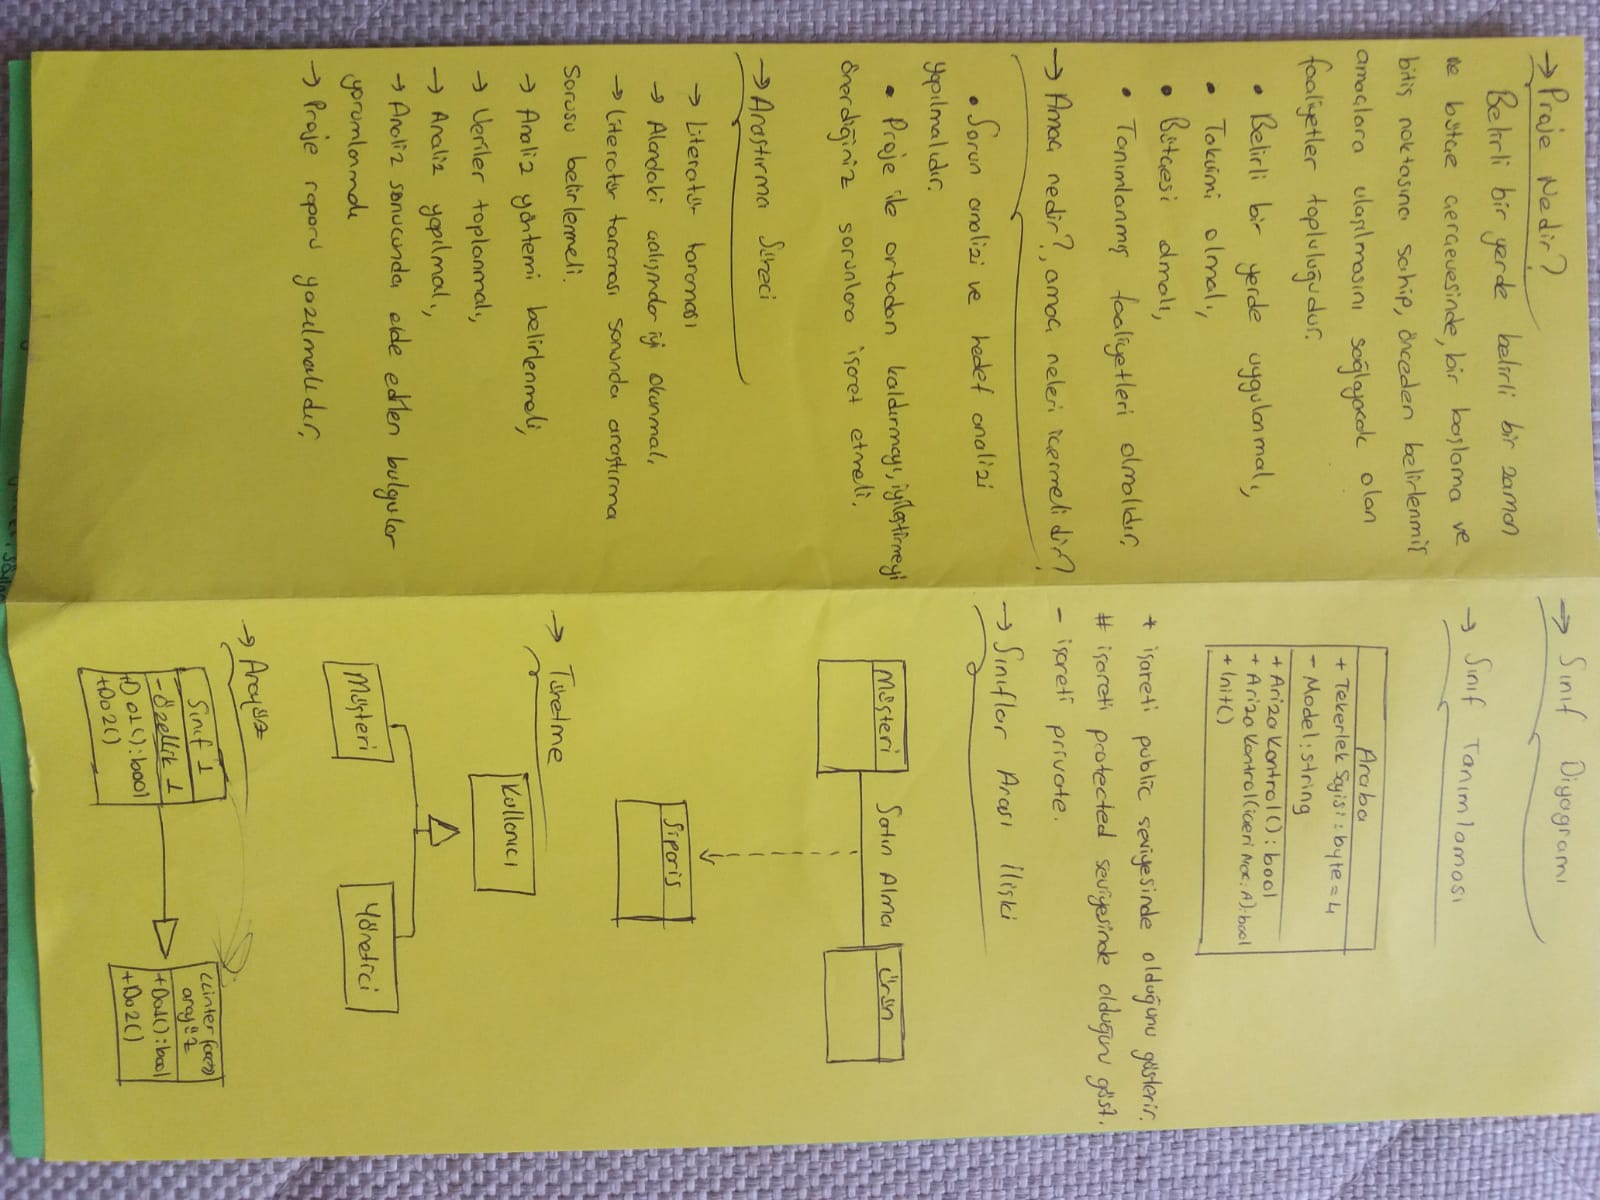 → Proje Nedir?
Belirli bir yerde belirli bir zaman
ve bütçe çerçevesinde, bir başlama ve
bitiş noktasına sahip, önceden belirlenmiş
amaçlara ulaşılmasını sağlayacak olan
faaliyetler topluluğudur.
• Belirli bir yerde uygulanmalı,
• Takvimi olmalı,
• Bütçesi olmalı,
• Tanımlanmış faaliyetleri olmalıdır.
→ Amaç nedir?, amaç neleri içermelidir?
• Sorun analizi ve hedef analizi
yapılmalıdır.
• Proje ile ortadan kaldırmayı, iyileştirmeyi
önerdiğiniz sorunlara işaret etmeli.
→ Araştırma Süreci
→ Literatür taraması
→ Alandaki çalışmalar iyi okunmalı,
→ Literatür taraması sonunda araştırma
sorusu belirlenmeli.
→ Analiz yöntemi belirlenmeli,
→ Veriler toplanmalı,
→ Analiz yapılmalı,
→ Analiz sonucunda elde edilen bulgular
yorumlanmalı
→ Proje raporu yazılmalıdır.
→ Sınıf Diyagramı
→ Sınıf Tanımlaması
Araba
+ Tekerlek Sayisi : byte = 4
- Model : string
+ Ariza Kontrol() : bool
+ Ariza Kontrol(iceri A) : bool
+ Init()
+ işareti public seviyesinde olduğunu gösterir.
# işareti protected seviyesinde olduğunu göst.
- işareti private.
→ Sınıflar Arası İlişki
Müşteri Satın Alma Ürün
Sipariş
→ Türetme
Kullanıcı
Müşteri Yönetici
→ Arayüz
Sınıf 1
- Özellik 1
+Do1() : bool
+Do2()
<<interface>>
arayüz
+Do1() : bool
+Do2()